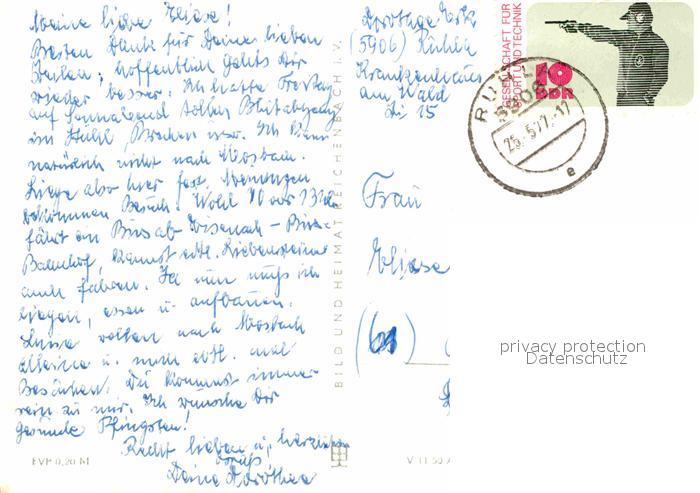 Meine liebe Eliese!
Besten Dank für Deine lieben
Zeilen, hoffentlich gehts Dir
wieder besser. Ich hatte Freitag
auf Sonnabend tollen
im Stuhl, Brechen usw. Ich kann
natürlich nicht nach Mosbach.
Liege also hier fest.
bekommen Besuch. Wohl 10 oder 13 Uhr
fährt ein Bus ab Eisenach - Bus-
Bahnhof, kannst evtl. Liebenstein
auch fahren. Ja nun muß ich
liegen, essen u. aufbauen.
wollten nach Mosbach
alleine u. mich evtl. mal
besuchen. Du kommst immer
rein zu mir. Ich wünsche Dir
gesunde Pfingsten!
Recht lieben u. herzlichen
Gruß
Deine Dorothea
EVP 0,20 M
BILD UND HEIMAT REICHENBACH I. V.
V 11 50
Dorothea
(5906) Ruhla
Krankenhaus
am Wald
Zi 15
GESELLSCHAFT FÜR
SPORT UND TECHNIK
10
DDR
RUHLA
5906
25.5.77.-17
e
Frau
Eliese
privacy protection
Datenschutz